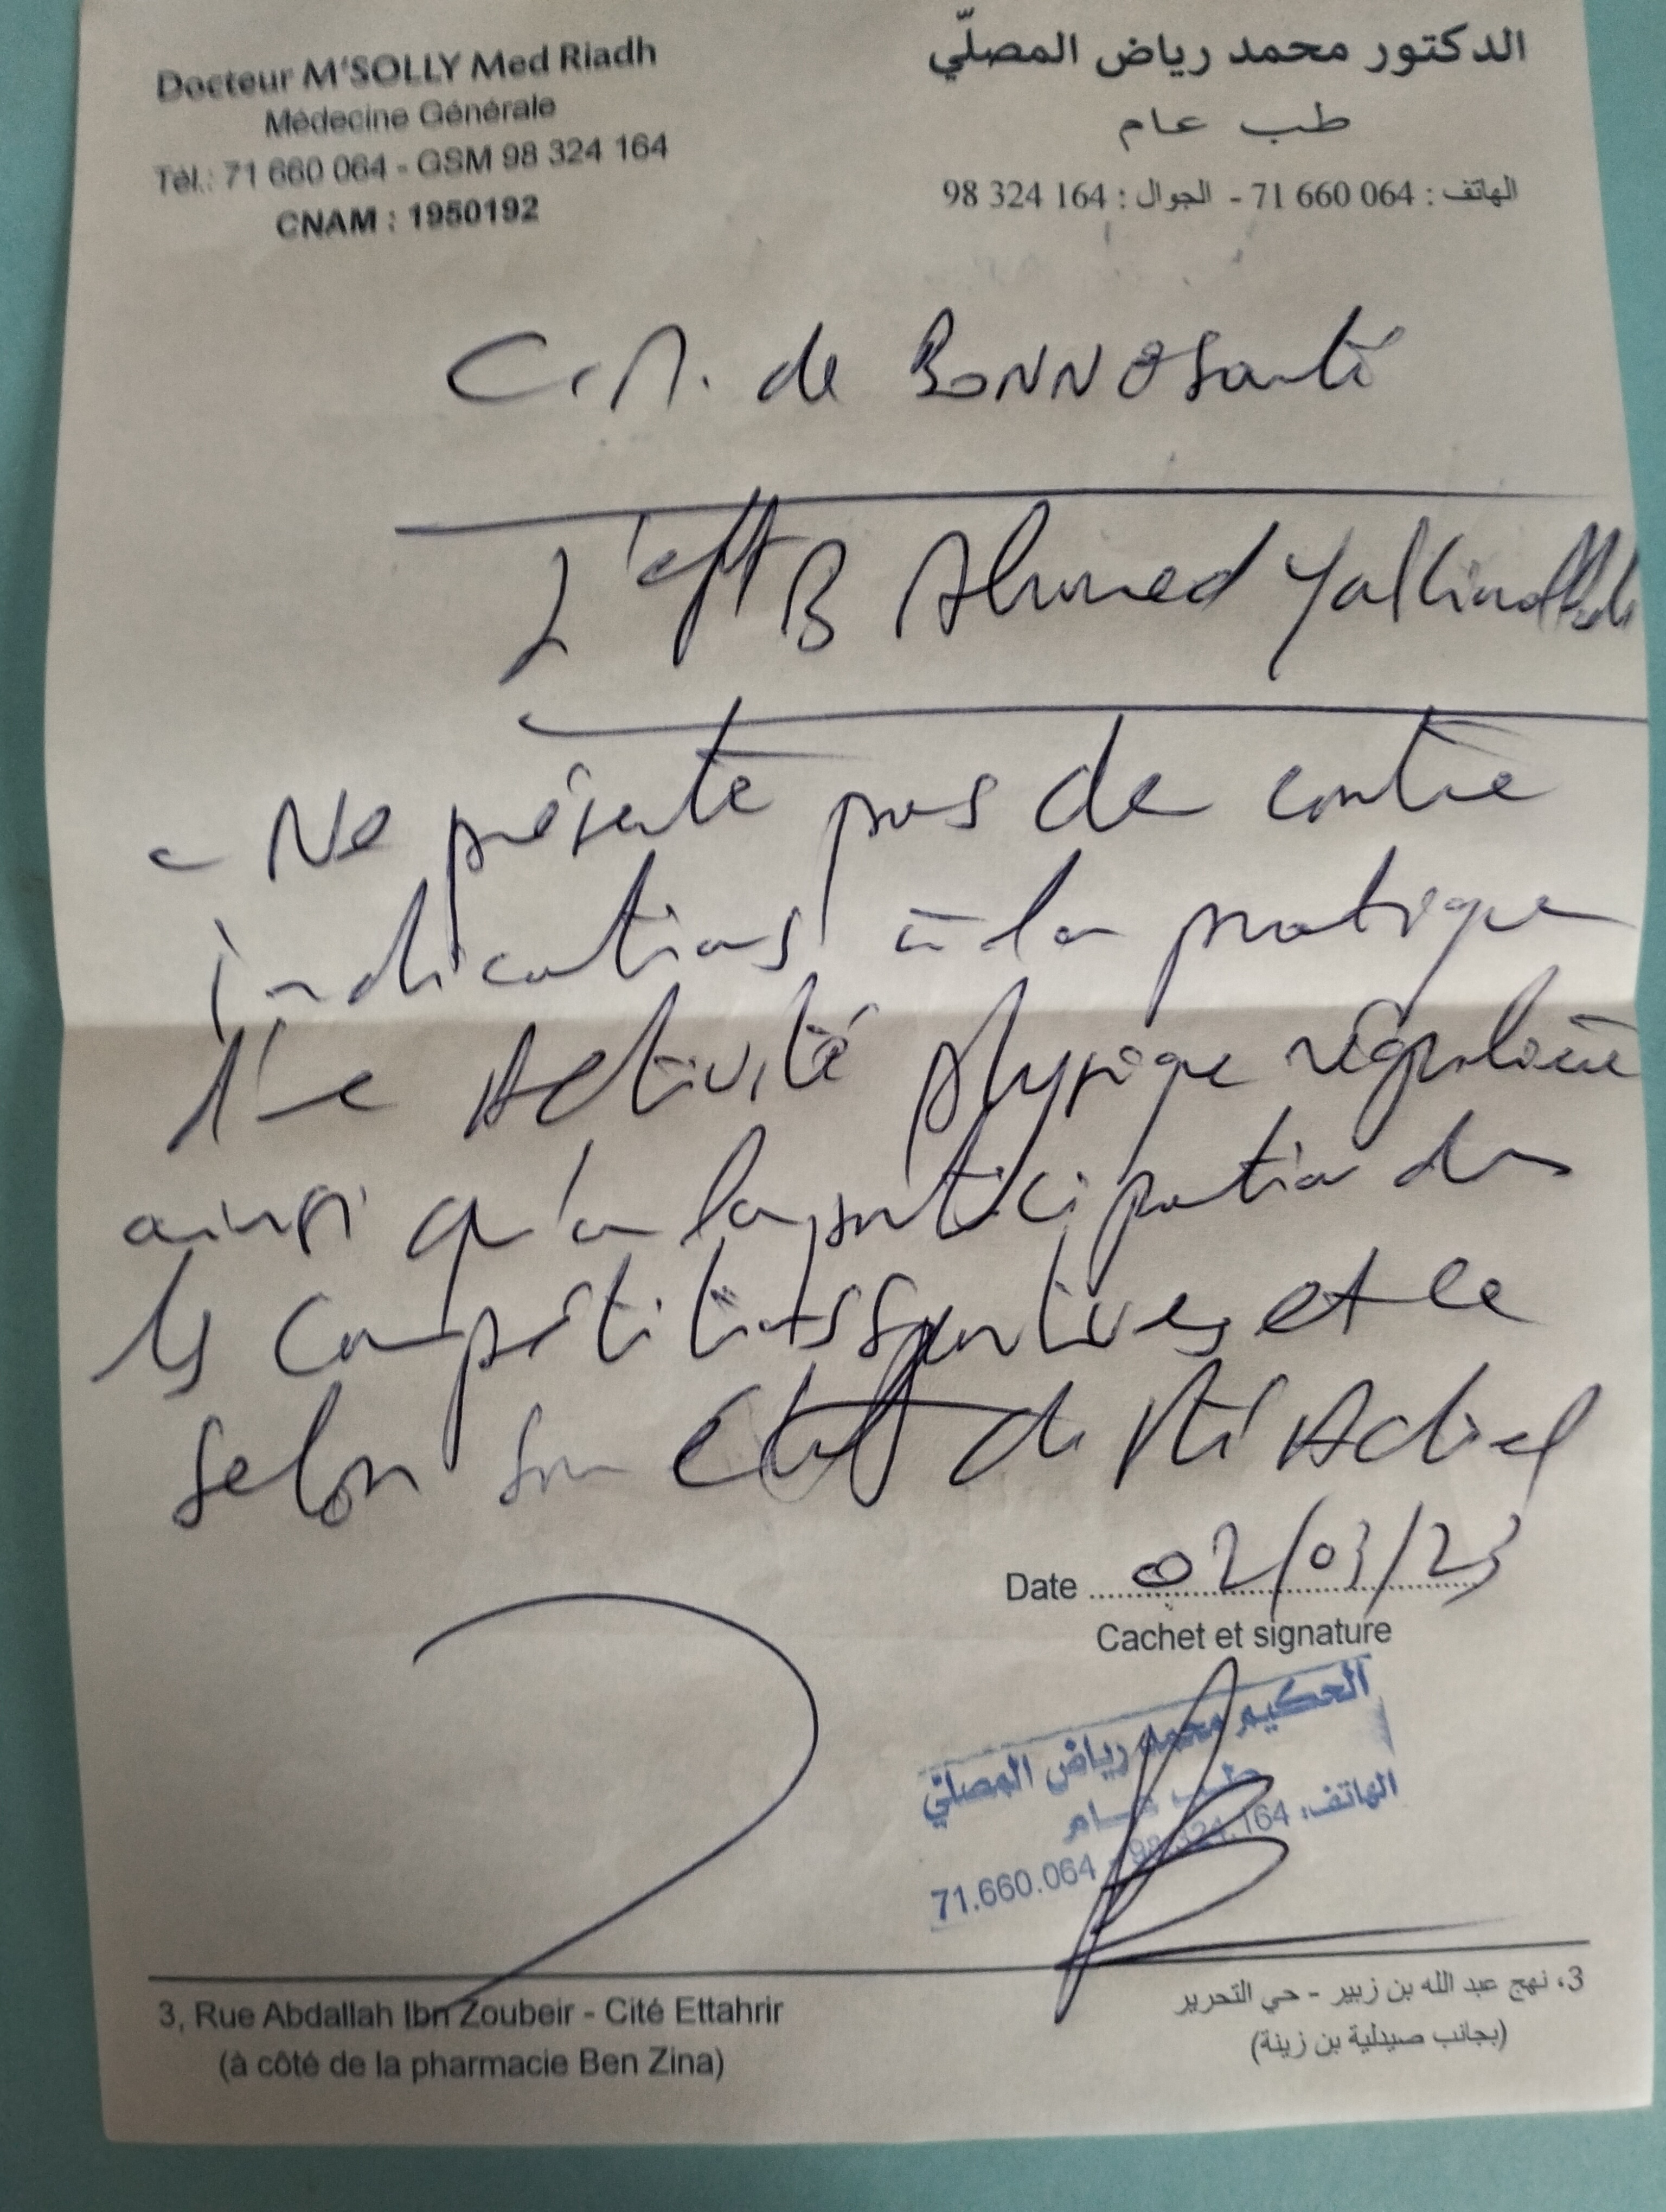 Docteur M'SOLLY Med Riadh
Médecine Générale
Tél.: 71 660 064 - GSM 98 324 164
CNAM : 1950192
الدكتور محمد رياض المصلّي
طب عام
الهاتف : 064 660 71 - الجوال : 164 324 98
C.M. de BONNE Santé
L'eft B Ahmed
- Ne présente pas de contre
indications à la pratique
d'une Activité physique régulière
ainsi qu'à la participation dans
les Compétitions sportives et ce
selon son état de Sté Actuel
Date 02/03/23
Cachet et signature
الحكيم محمد رياض المصلّي
طب عام
الهاتف: 98.324.164 - 71.660.064
3, Rue Abdallah Ibn Zoubeir - Cité Ettahrir
(à côté de la pharmacie Ben Zina)
3، نهج عبد الله بن زبير - حي التحرير
(بجانب صيدلية بن زينة)